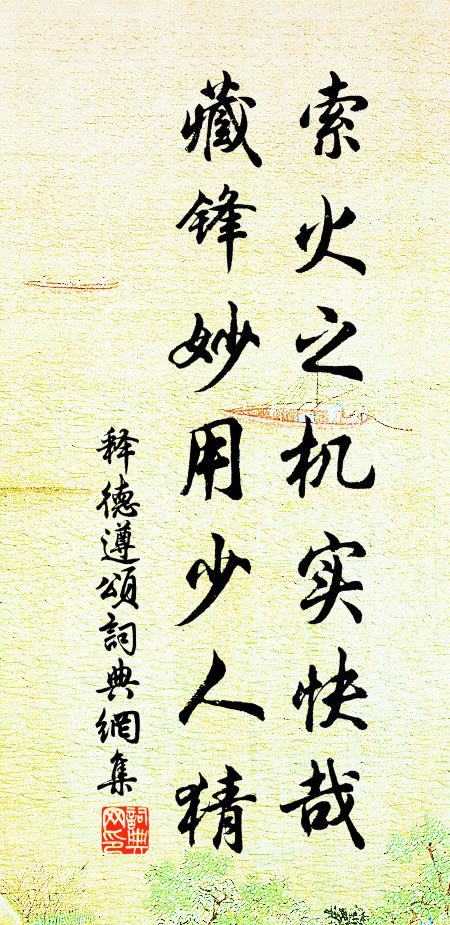 索火之机实快哉
藏锋妙用少人猜
释德遵頌詞典網集
詞典网印